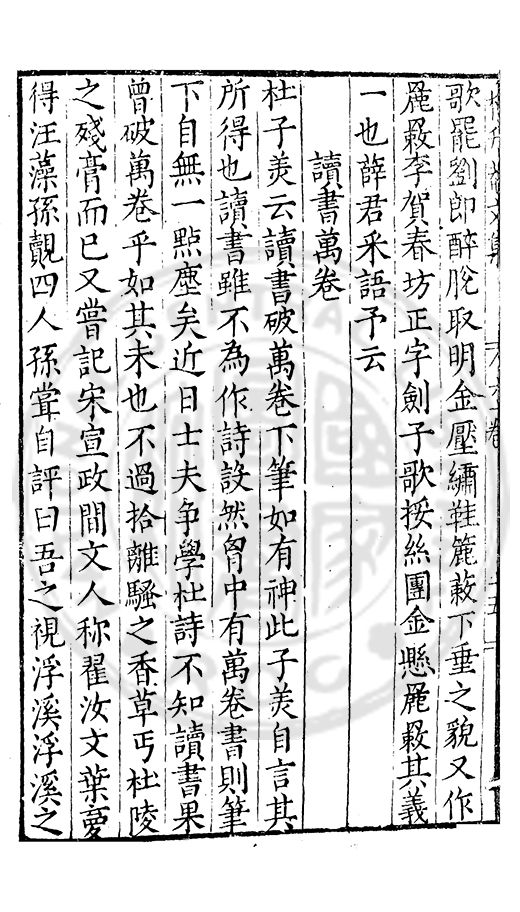 歌罷劉郎醉脫取明金壓繡鞋簏䔩下垂之貌又作
㒔㪍李賀春坊正字劍子歌挼絲團金懸㒔㪍其義
一也薛君采語予云
讀書萬卷
杜子美云讀書破萬卷下筆如有神此子美自言其
所得也讀書雖不為作詩設然胷中有萬卷書則筆
下自無一點塵矣近日士夫争學杜詩不知讀書果
曾破萬卷乎如其未也不過拾離騷之香草丐杜陵
之殘膏而已又嘗記宋宣政間文人称翟汝文葉夢
得汪藻孫覿四人孫嘗自評曰吾之視浮溪浮溪之